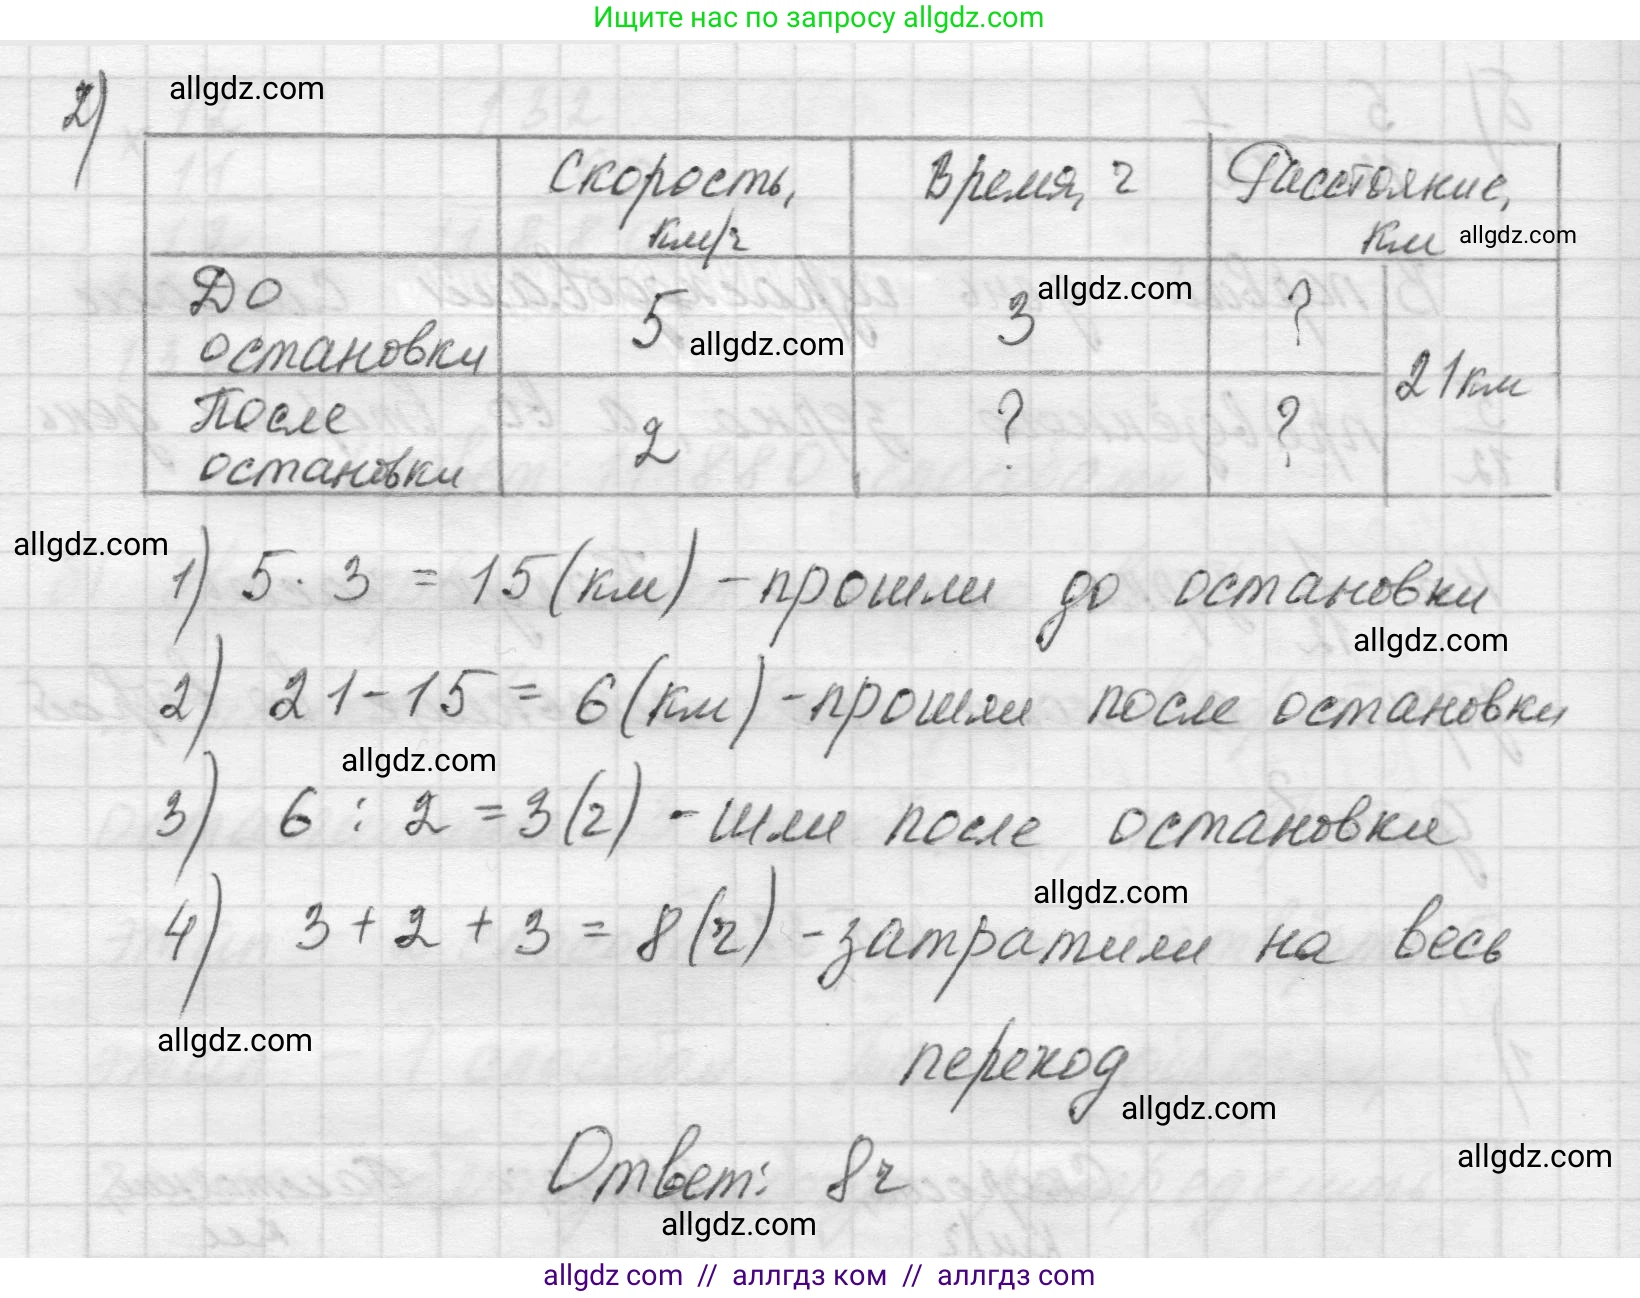 Ищите нас по запросу allgdz.com
2) allgdz.com
Скорость, Время, ч Расстояние,
км/ч км allgdz.com
До 5 3 allgdz.com ?
остановки allgdz.com 21 км
После 2 ? ?
остановки
allgdz.com
1) 5 · 3 = 15 (км) - прошли до остановки
allgdz.com
2) 21 - 15 = 6 (км) - прошли после остановки
allgdz.com
3) 6 : 2 = 3 (ч) - шли после остановки
allgdz.com
4) 3 + 2 + 3 = 8 (ч) - затратили на весь
allgdz.com
переход
allgdz.com
allgdz.com
Ответ: 8 ч
allgdz.com
allgdz com // аллгдз ком // аллгдз com